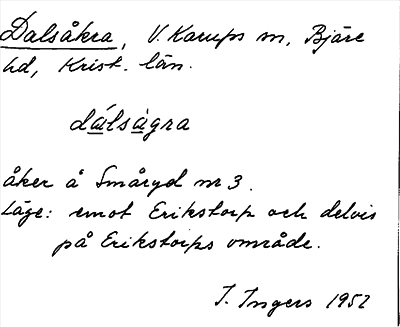 Dalsåkra, V. Karups sn, Bjäre
hd, Krist. län.
dálsàgra
åker å Småryd nr 3.
Läge: emot Erikstorp och delvis
på Erikstorps område.
I. Ingers 1952